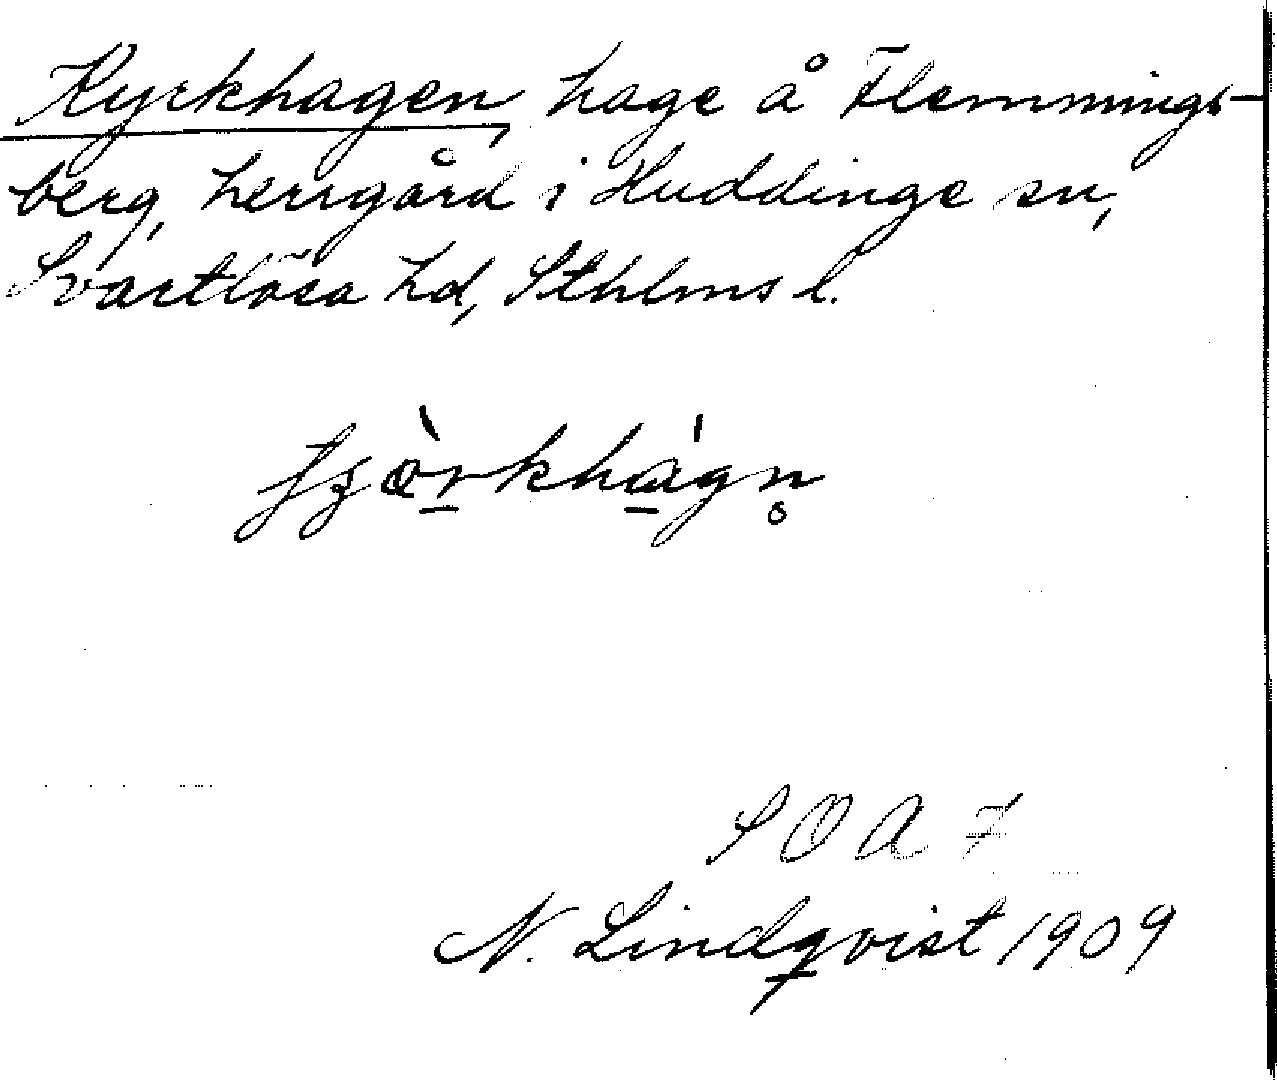 Kyrkhagen, hage å Flemmings-
berg, herrgård i Huddinge sn,
Svartlösa hd, Sthlms l.
SOA 7
N. Lindqvist 1909